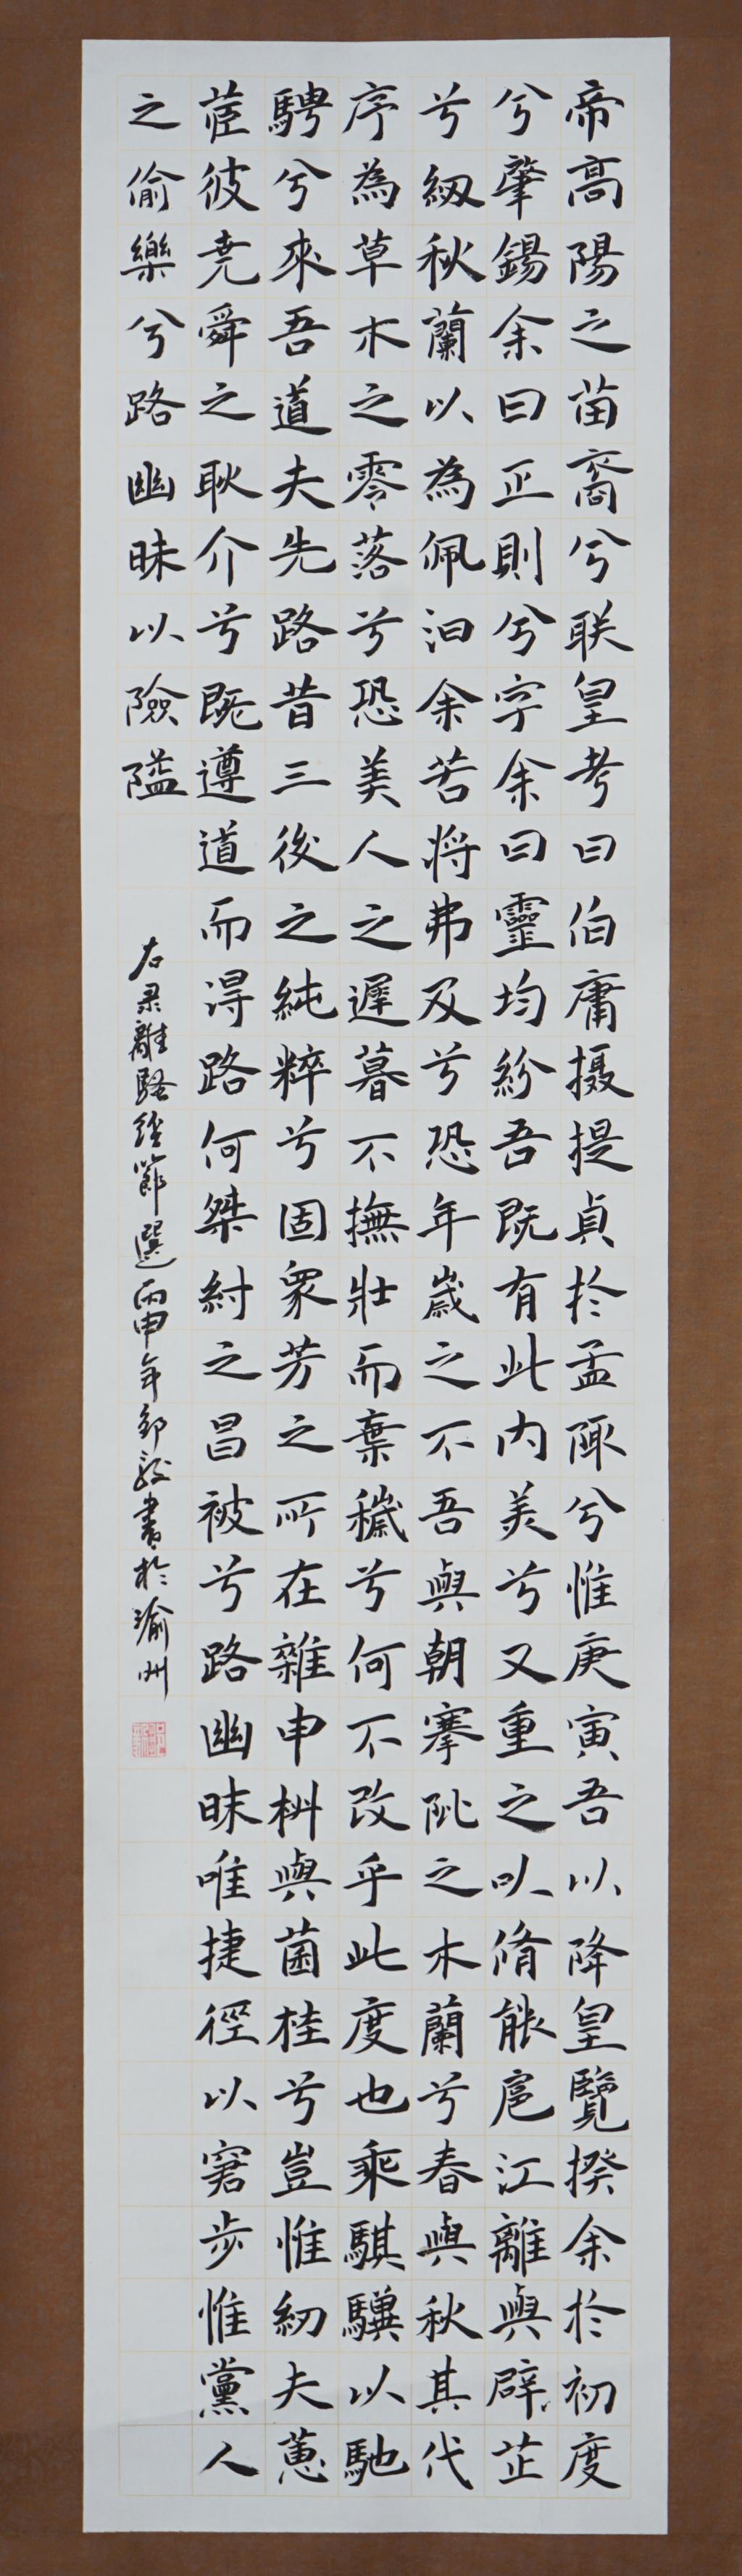 帝高陽之苗裔兮联皇考曰伯庸摄提貞於孟陬兮惟庚寅吾以降皇覽揆余於初度
兮肇錫余曰正則兮字余曰靈均紛吾既有此内美兮又重之以脩能扈江離與辟芷
兮紉秋蘭以為佩汩余若将弗及兮恐年歲之不吾與朝搴阰之木蘭兮春與秋其代
序為草木之零落兮恐美人之遲暮不撫壯而棄穢兮何不改乎此度也乘騏驥以馳
騁兮來吾道夫先路昔三後之純粹兮固衆芳之所在雜申椒與菌桂兮豈惟紉夫蕙
茝彼尧舜之耿介兮既遵道而得路何桀紂之昌被兮路幽昧唯捷徑以窘步惟黨人
之偷樂兮路幽昧以險隘
右录離騷經節選丙申年邹書於渝州